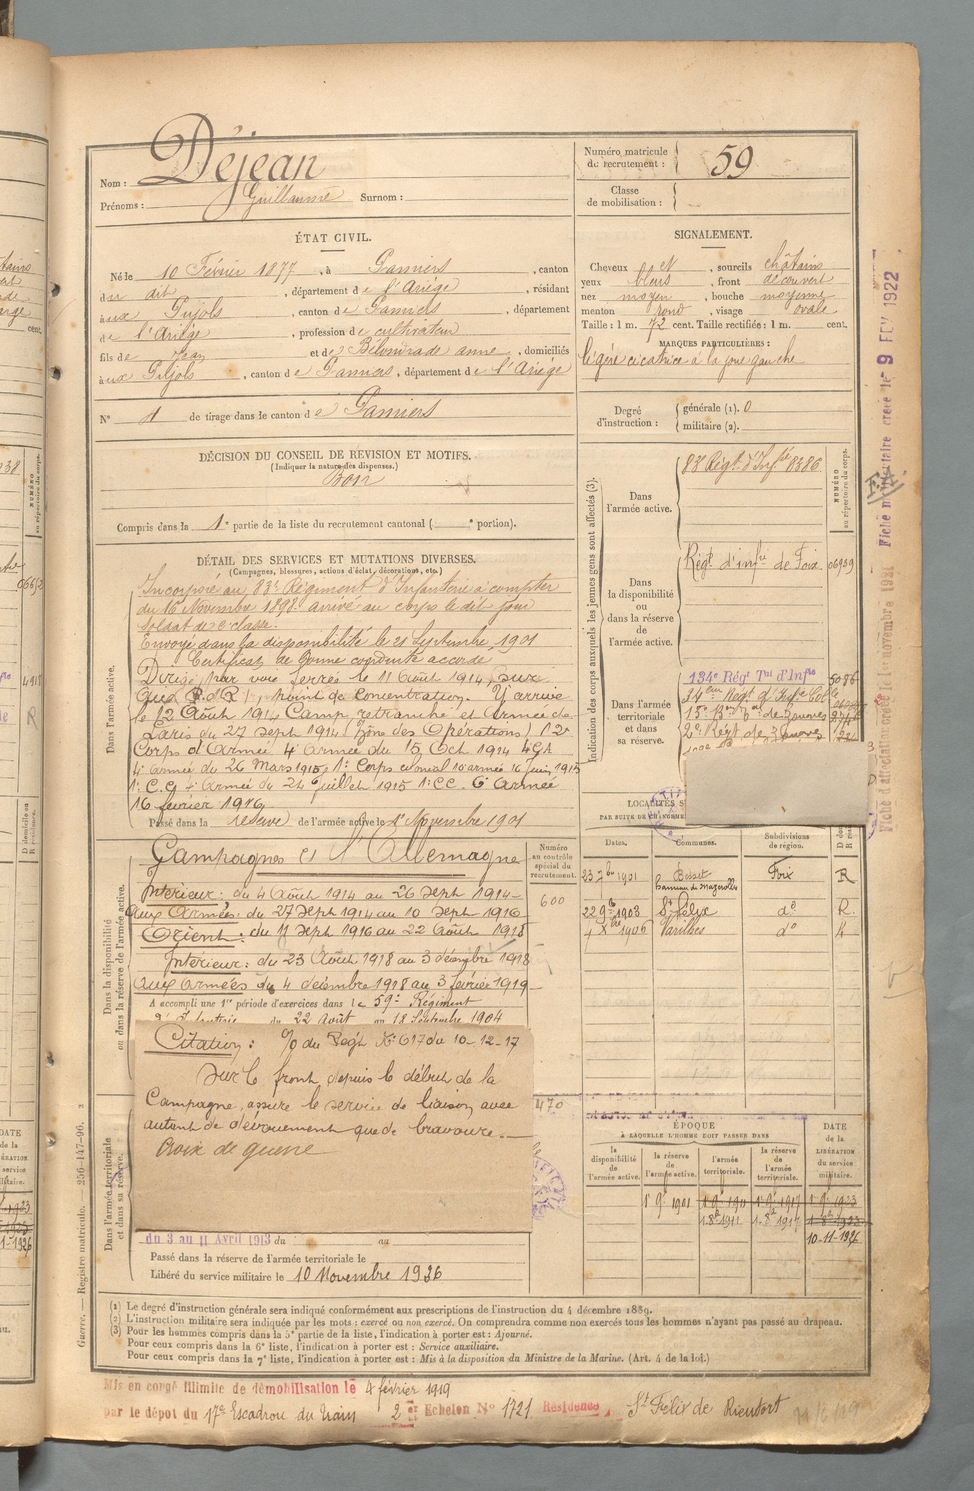 Déjean
Nom :
Prénoms : Guillaume Surnom :
Numéro matricule de recrutement : 59
Classe de mobilisation :
ÉTAT CIVIL.
Né le 10 Février 1877, à Pamiers, canton
du dit, département de l'Ariège, résidant
aux Pujols, canton de Pamiers, département
de l'Ariège, profession de cultivateur
fils de Jean et de anne, domiciliés
aux Pujols, canton de Pamiers, département de l'Ariège
N° 1 de tirage dans le canton de Pamiers
SIGNALEMENT.
Cheveux et, sourcils châtains
yeux bleus, front découvert
nez moyen, bouche moyenne
menton rond, visage ovale
Taille : 1 m. 72 cent. Taille rectifiée : 1 m. cent.
MARQUES PARTICULIÈRES :
légère cicatrice à la joue gauche
Degré d'instruction : générale (1). 0
militaire (2).
DÉCISION DU CONSEIL DE REVISION ET MOTIFS.
(Indiquer la nature des dispenses.)
Bon
Compris dans la 1e partie de la liste du recrutement cantonal ( e portion).
DÉTAIL DES SERVICES ET MUTATIONS DIVERSES.
(Campagnes, blessures, actions d'éclat, décorations, etc.)
Dans l'armée active.
Incorporé au 83e Régiment d'Infanterie à compter
du 16 Novembre 1898. arrivé au corps le dit jour
soldat de 2e classe.
Envoyé dans la disponibilité le 21 Septembre 1901
Certificat de bonne conduite accordé
Dirigé par voie ferrée le 11 Août 1914, sur
point de Concentration. Y arrive
le 12 Août 1914 Camp retranché et Armée de
Paris du 27 Sept 1914 (Zône des Opérations) 12e
Corps d'Armée 4e Armée du 15 Oct 1914 4e CA
4e armée du 26 Mars 1915, 1er Corps colonial 10e armée 16 Juin 1915
1er C.C. 4e Armée du 24 Juillet 1915 1er CC. 6e Armée
16 février 1916
Passé dans la réserve de l'armée active le 1er Novembre 1901
Indication des corps auxquels les jeunes gens sont affectés (3).
NUMÉRO au répertoire du corps.
Dans l'armée active.
83e Régt d'Infie 8386
Dans la disponibilité ou dans la réserve de l'armée active.
Régt d'infie de Foix 06939
Dans l'armée territoriale et dans sa réserve.
134e Régt Tal d'Infie 5086
34ème Régt d'Infie Colle
15e Bon de Zouaves
2e Régt de Zouaves
LOCALITÉS S
PAR SUITE DE CHANGEME
Dates. Communes. Subdivisions de région. D domicile ou R résidence.
23 7bre 1901 Foix R
22 9bre 1903 St Félix do R
1906 Varilhes do R
Dans la disponibilité ou dans la réserve de l'armée active.
Numéro au contrôle spécial du recrutement.
600
Campagnes ct l'Allemagne
Intérieur : du 4 Août 1914 au 26 Sept 1914
Aux Armées : du 27 Sept 1914 au 10 Sept 1916
Orient : du 11 Sept 1916 au 22 Août 1918
Intérieur : du 23 Août 1918 au 3 décembre 1918
Aux armées du 4 décembre 1918 au 3 février 1919
A accompli une 1re période d'exercices dans le 59e Régiment
d'Infanterie du 22 Août au 18 Septembre 1904
Citation : O/ du Régt No 617 du 10-12-17
Sur le front depuis le début de la
Campagne, assure le service de liaison avec
autant de dévouement que de bravoure.
Croix de guerre
470
Dans l'armée territoriale et dans sa réserve.
du 3 au 11 Avril 1913 du au
Passé dans la réserve de l'armée territoriale le
Libéré du service militaire le 10 Novembre 1926
ÉPOQUE
À LAQUELLE L'HOMME DOIT PASSER DANS
la disponibilité de l'armée active. la réserve de l'armée active. l'armée territoriale. la réserve de l'armée territoriale.
DATE de la LIBÉRATION du service militaire.
1 9bre 1901 1 9bre 1911 1 9bre 1917 1 9bre 1923
1-8bre 1911 1-8bre 1917 1-8bre 1923
10-11-1926
(1) Le degré d'instruction générale sera indiqué conformément aux prescriptions de l'instruction du 4 décembre 1889.
(2) L'instruction militaire sera indiquée par les mots : exercé ou non exercé. On comprendra comme non exercés tous les hommes n'ayant pas passé au drapeau.
(3) Pour les hommes compris dans la 5e partie de la liste, l'indication à porter est : Ajourné.
Pour ceux compris dans la 6e liste, l'indication à porter est : Service auxiliaire.
Pour ceux compris dans la 7e liste, l'indication à porter est : Mis à la disposition du Ministre de la Marine. (Art. 4 de la loi.)
Mis en congé illimité de démobilisation le 4 février 1919
par le dépôt du 17e Escadron du Train 2e Echelon No 1721 Résidence St Felix de Rieutort
Guerre. — Registre matricule. — 256-147-96.
Fiche d'affectation créée le 1er novembre 1921
créée le 9 FEV 1922